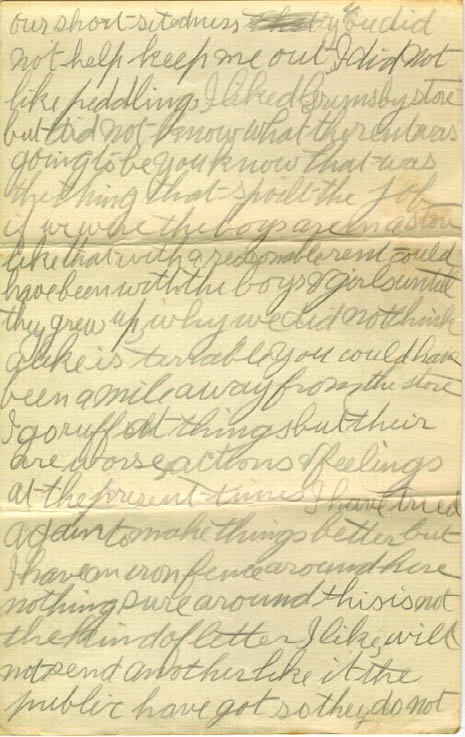 our short-sitedness if you did
not help keep me out, I did not
like peddling, I liked Grimsby store
but did not know what the rent was
going to be you know that was
the thing that spoilt the job
if we were the boys are in a store
like that with a reasonable rent could
have been with the boys & girls until
they grew up, why we did not think
alike is terrable you could have
been a mile away from the store
I go ruff at things but their
are worse, actions & feelings
at the present times I have tried
again to make things better but
I have an iron fence around here
nothing sure around this is not
the kind of letter I like, will
not send another like it the
public have got so they do not